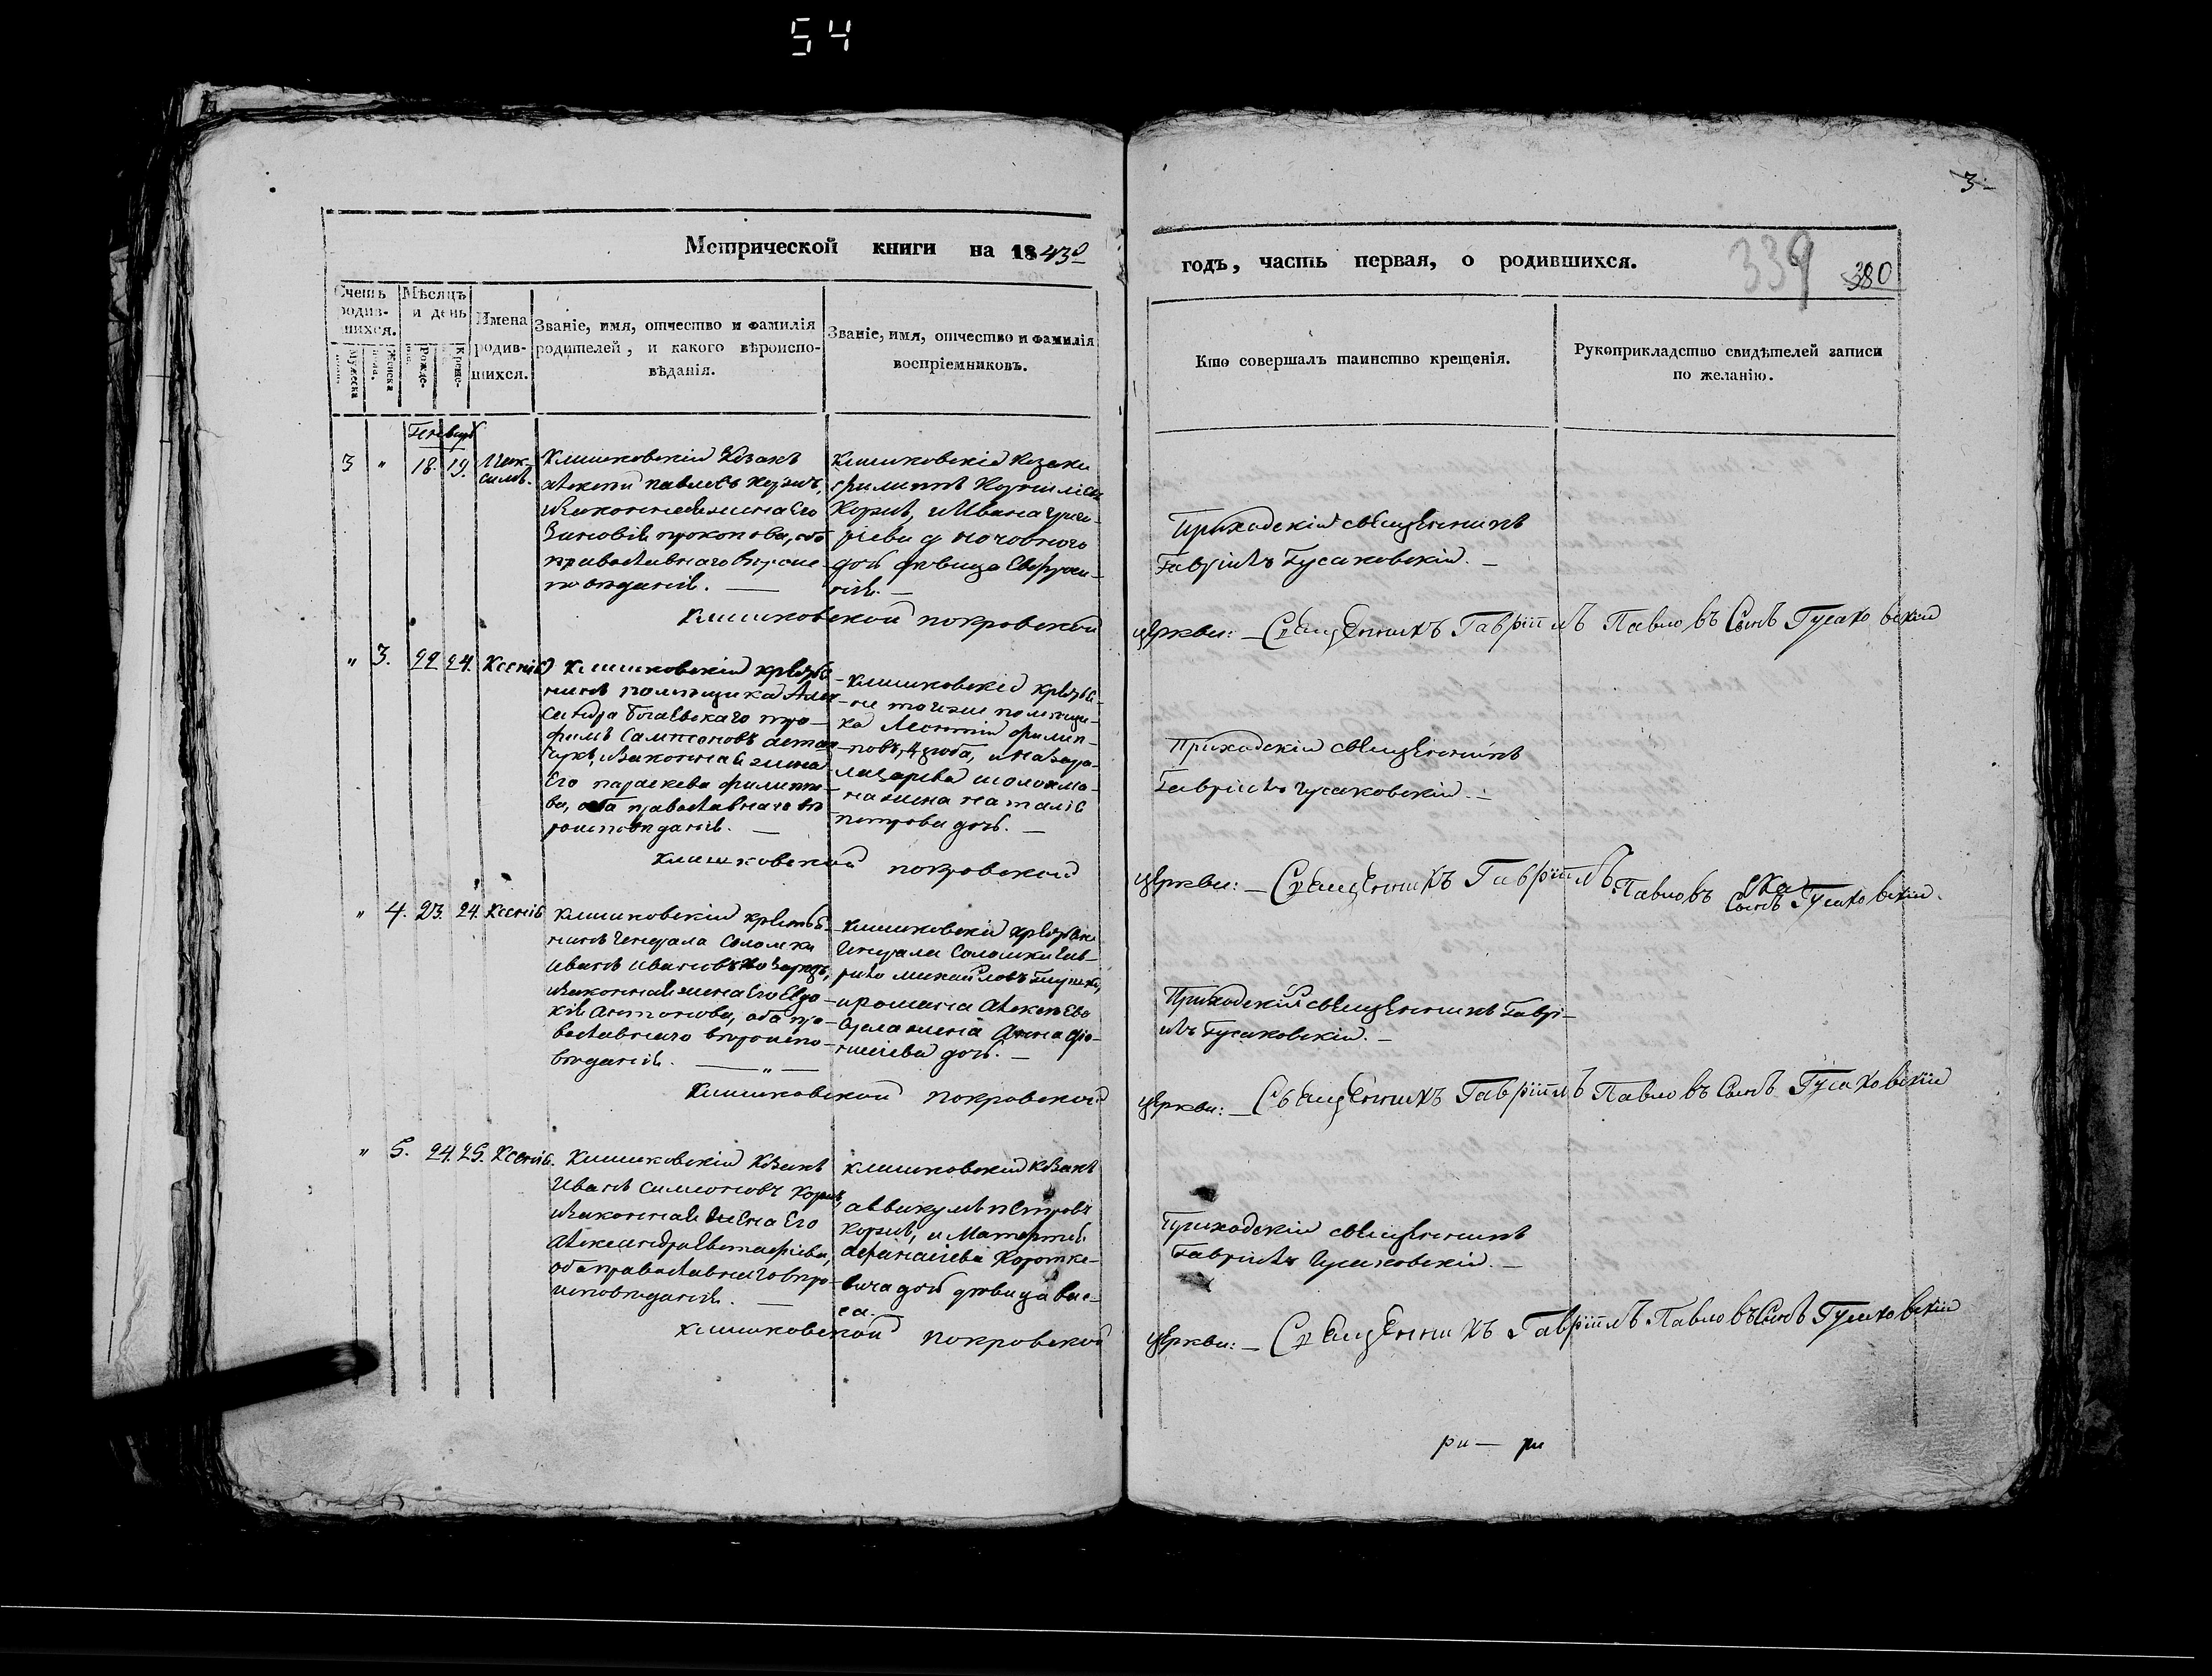 54
3
Метрической книги на 1843й
годъ, часть первая, о родившихся.
339
380
Счетъ родив- шихся.
Мужеска
Женска
Мѣсяцъ и день
Рожде-
Креще-
Имена родив- шихся.
Званіе, имя, отчество и фамилія родителей, и какого вѣроиспо- вѣданія.
Званіе, имя, отчество и фамилія воспріемниковъ.
Кто совершалъ таинство крещенія.
Рукоприкладство свидѣтелей записи по желанію.
Генварь
3 " 18. 19. Мак-
симъ.
Клишковскій Козакъ
Алексѣй Павловъ Коржъ,
и законная жена Его
Зиновія Прокопова, оба
православнаго вѣроис-
повѣданія. —
Клишковскіе Козаки
Филиппъ Корниліевъ
Коржъ, и Ивана Григо-
ріева
дочь дѣвица Евфроси-
нія. —
Приходскій священникъ
Гавріилъ Гусаковскій. —
Клишковской покровской
церкви: — Священникъ Гавріилъ Павловъ Сынъ Гусаковскій
" 3. 22 24. Ксенія
Клишковскій крестья-
нинъ помѣщика Алек-
сандра Богаевскаго Тро-
фимъ Сампсоновъ
и законная жена
Его Параскева Филиппо-
ва, оба православнаго вѣ-
роисповѣданія. —
Клишковскіе крестья-
не тогоже помѣщи-
ка Леонтій Филип-
повъ
Лазарева
жена Наталія
Петрова дочь. —
Приходскій священникъ
Гавріилъ Гусаковскій. —
Клишковской покровской
церкви: — Священникъ Гавріилъ Павловъ Сынъ Гусаковскій.
" 4. 23. 24. Ксенія
Клишковскій крестья-
нинъ Генерала Соломки
Иванъ Ивановъ
и законная жена Его Евдо-
кія Антонова, оба пра-
вославнаго вѣроиспо-
вѣданія. — " —
Клишковскіе крестьяне
Генерала Соломки Гав-
рило Михайловъ
и Романа Алексѣева
жена Анна
дочь. —
Приходскій священникъ Гаврі-
илъ Гусаковскій. —
Клишковской покровской
церкви: — Священникъ Гавріилъ Павловъ Сынъ Гусаковскій
" 5. 24. 25. Ксенія.
Клишковскій Козакъ
Иванъ Симеоновъ Коржъ,
и законная жена Его
Александра Евстафіева,
оба православнаго вѣро-
исповѣданія. —
Клишковскій Козакъ
Аввакумъ Петровъ
Коржъ, и
Афанасіева Коротке-
вича дочь дѣвица Вас-
са. —
Приходскій священникъ
Гавріилъ Гусаковскій. —
Клишковской покровской
церкви: — Священникъ Гавріилъ Павловъ Сынъ Гусаковскій
ри — ри